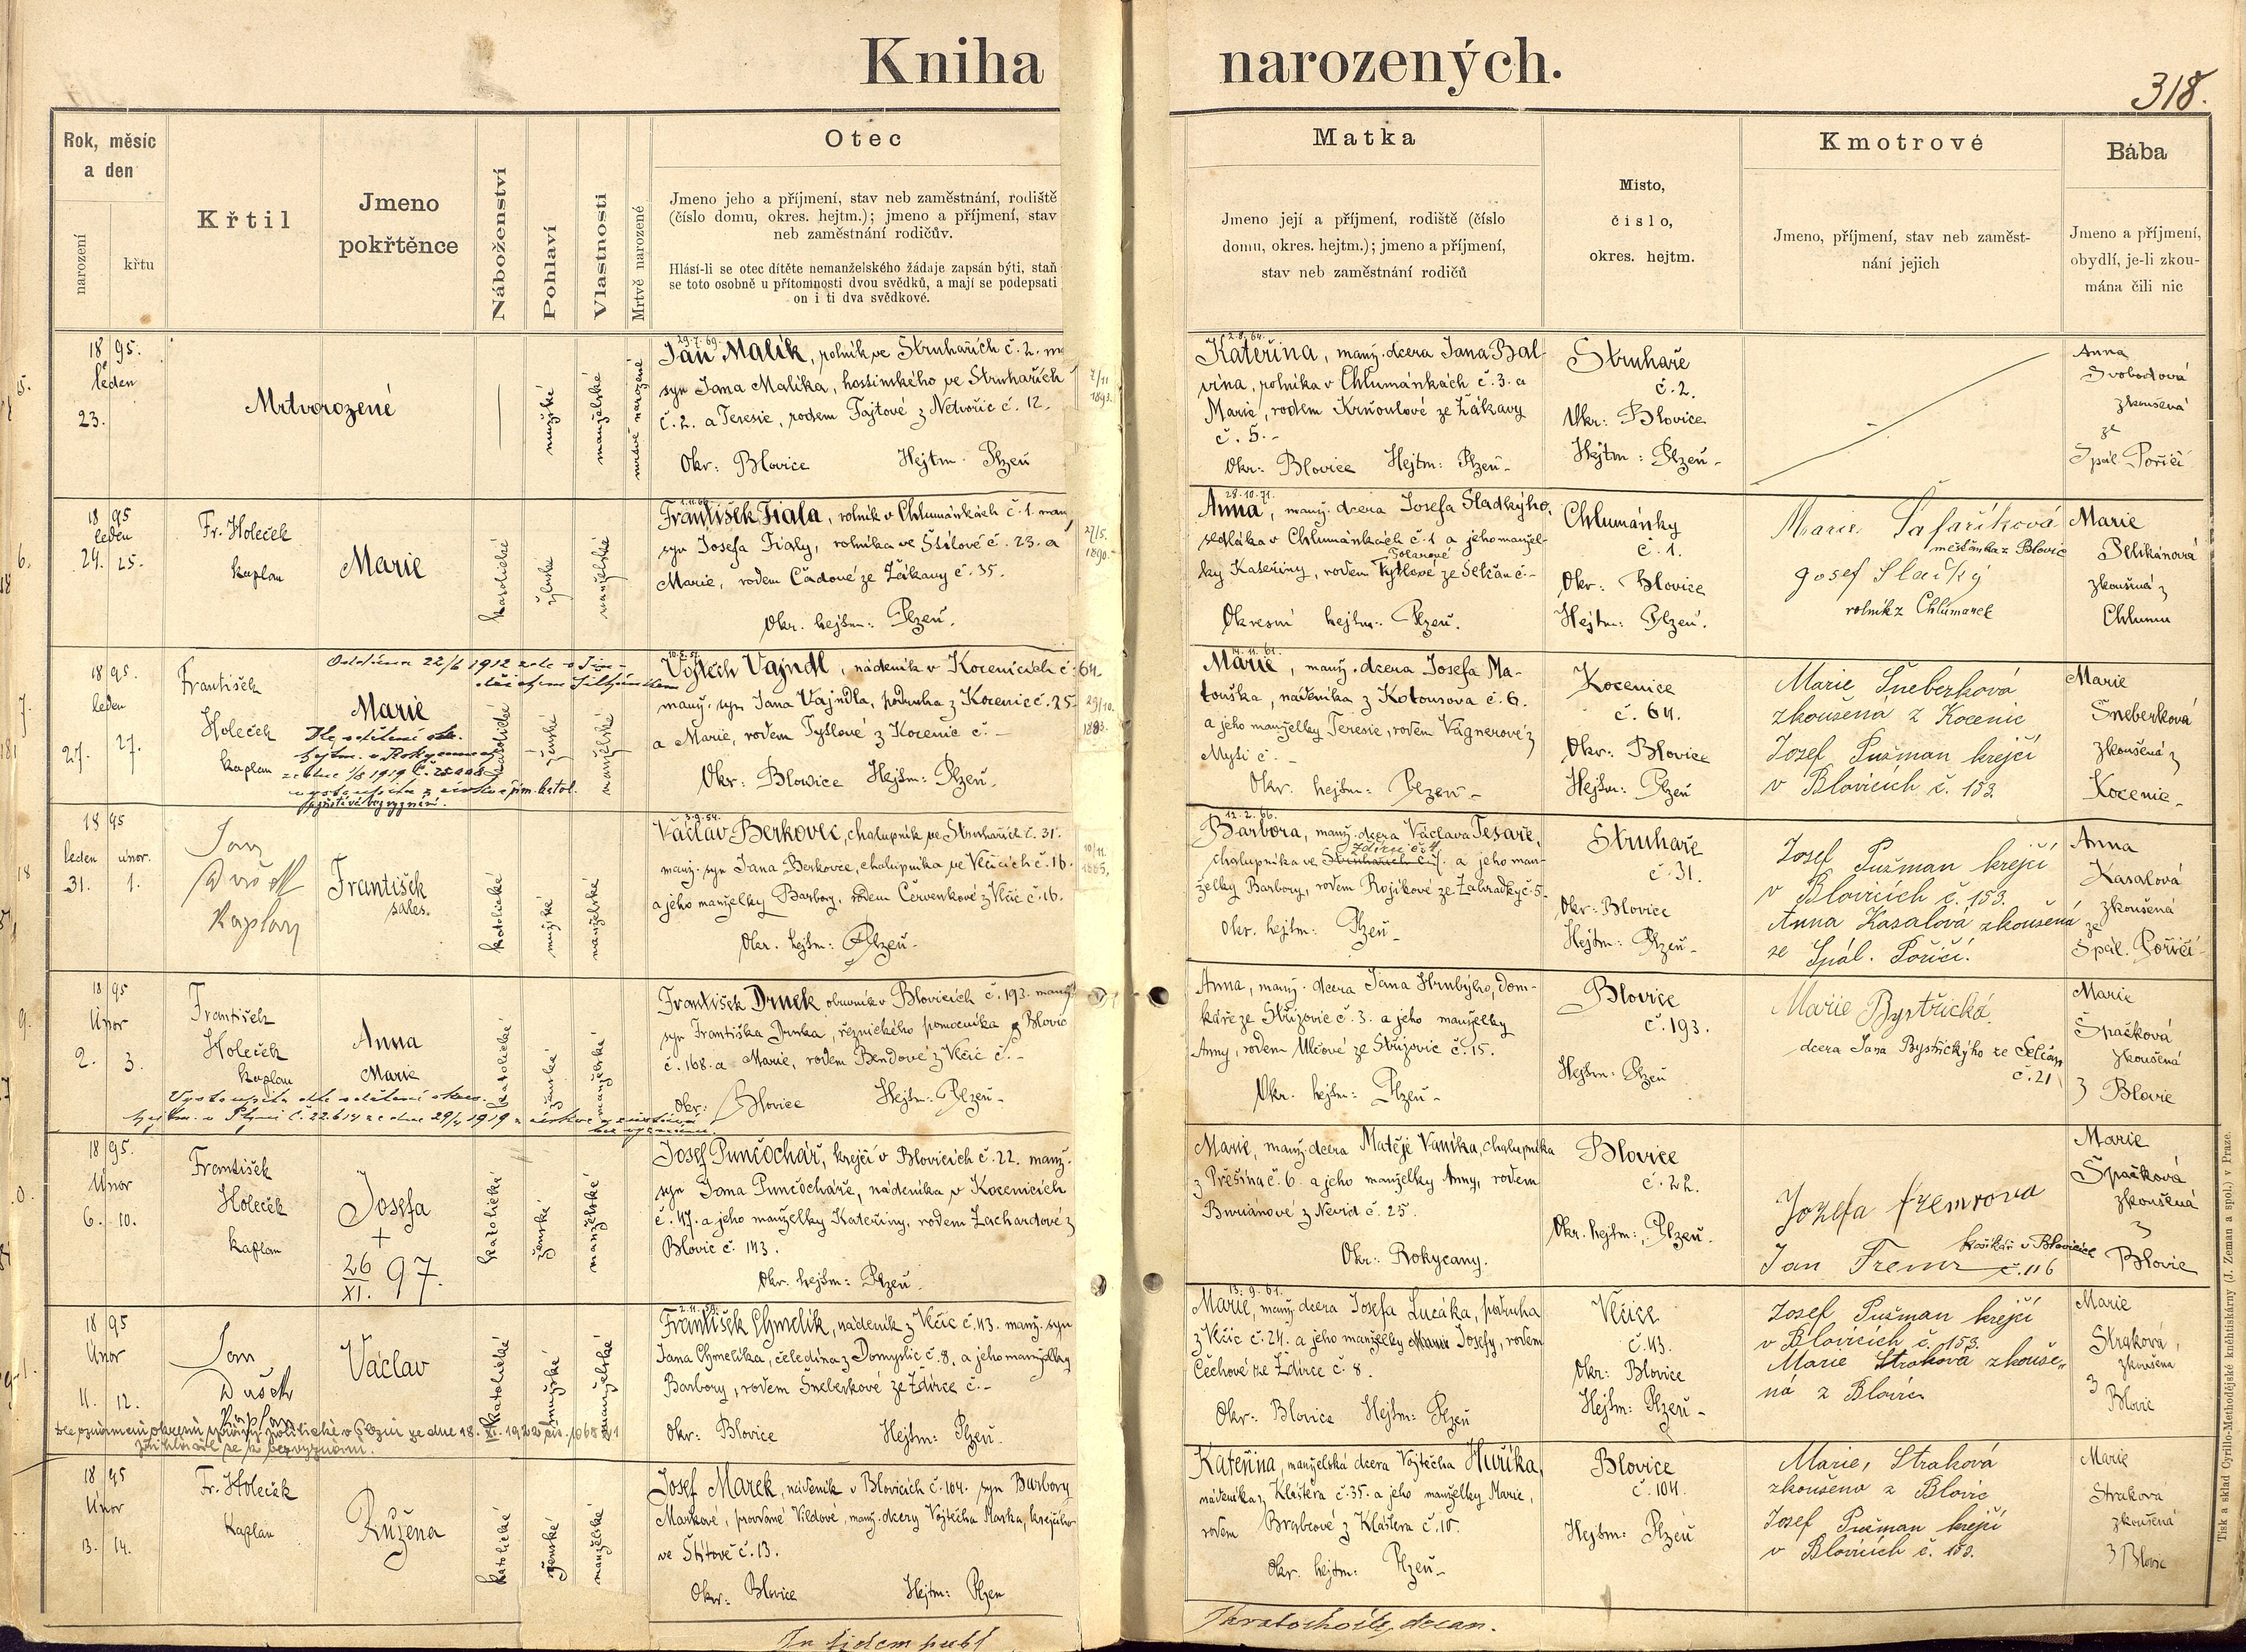 Kniha narozených.
318.
Rok, měsíc
a den
narození
křtu
Křtil
Jmeno
pokřtěnce
Náboženství
Pohlaví
Vlastnosti
Mrtvě narozené
Otec
Jmeno jeho a příjmení, stav neb zaměstnání, rodiště
(číslo domu, okres. hejtm.); jmeno a příjmení, stav
neb zaměstnání rodičův.
Hlásí-li se otec dítěte nemanželského žádaje zapsán býti, staň
se toto osobně u přítomnosti dvou svědků, a mají se podepsati
on i ti dva svědkové.
Matka
Jmeno její a příjmení, rodiště (číslo
domu, okres. hejtm.); jmeno a příjmení,
stav neb zaměstnání rodičů
Místo,
číslo,
okres. hejtm.
Kmotrové
Jmeno, příjmení, stav neb zaměst-
nání jejich
Bába
Jmeno a příjmení,
obydlí, je-li zkou-
mána čili nic
18 95.
leden
23.
Mrtvorozené
mužské
manželské
mrtvě narozené
29.7.69.
Jan Malík, rolník ve Struhařích č. 2. m
syn Jana Malíka, hostinského ve Struhařích
č. 2. a Teresie, rodem Fajtové z Netvořic č. 12.
Okr: Blovice Hejtm. Plzeň
2.8.64.
Kateřina, manž. dcera Jana Bal-
vína, rolníka v Chlumánkách č. 3. a
Marie, rodem Krňoulové ze Žákavy
č. 5.-
Okr: Blovice Hejtm: Plzeň-
Struhaře
č. 2.
Okr: Blovice
Hejtm: Plzeň-
Anna
Svobodová
zkoušená
ze
Spál. Poříčí
18 95
leden
24. 25.
Fr. Holeček
kaplan
Marie
katolické
ženské
manželské
František Fiala, rolník v Chlumánkách č. 1. manž
syn Josefa Fialy, rolníka ve Štítově č. 23. a
Marie, rodem Čadové ze Žákavy č. 35.
Okr. hejtm: Plzeň.
27/5.
1890.
28.10.71.
Anna, manž. dcera Josefa Sladkýho,
sedláka v Chlumánkách č. 1 a jeho manžel-
ky Kateřiny, rodem ze Selčan č.-
Okresní hejtm: Plzeň.
Chlumánky
č. 1.
Okr: Blovice
Hejtm: Plzeň.
Marie Šafaříková
měšťanka z Blovic
Josef Slatký
rolník z Chlumanek
Marie
Pelikánová
zkoušená z
Chlumu
18 95.
leden
27. 27.
František
Holeček
kaplan
Marie
katolické
ženské
manželské
Vojtěch Vajndl, nádeník v Kocenicích č. 64.
manž. syn Jana Vajndla, podruha z Kocenic č. 25
a Marie, rodem Tytlové z Kocenic č.-
Okr: Blowice Hejtm: Plzeň.
29/10.
1883.
14.11.61.
Marie, manž. dcera Josefa Ma-
touška, nádeníka z Kotousova č. 6.
a jeho manželky Teresie, rodem Vágnerové z
Myti č.-
Okr. hejtm: Plzeň-
Kocenice
č. 64.
Okr: Blovice
Hejtm: Plzeň
Marie Šneberková
zkoušená z Kocenic
Josef Pužman krejčí
v Blovicích č. 153.
Marie
Šneberková
zkoušená z
Kocenic-
18 95
leden únor.
31. 1.
Jan
Dušek
Kaplan
František
sales.
katolické
mužské
manželské
3.9.54.
Václav Berkovec, chalupník ve Struhařích č. 31.
manž. syn Jana Berkovce, chalupníka ve Vlčicích č. 16.
a jeho manželky Barbory, rodem Červenkové z Vlčic č. 16.
Okr. hejtm: Plzeň-
10/11.
1885.
12.2.66.
Barbora, manž. dcera Václava Tesaře,
Ždírci č. 4
chalupníka ve Struhařích a jeho man-
želky Barbory, rodem Rojíkové ze Zahrádky č. 5-
Okr. hejtm: Plzeň-
Struhaře
č. 31.
Okr: Blovice
Hejtm: Plzeň-
Josef Pužman krejčí
v Blovicích č. 153.
Anna Kasalová zkoušená
ze Spál. Poříčí.
Anna
Kasalová
zkoušená
ze
Spál. Poříčí
18 95
Únor
2. 3.
František
Holeček
kaplan
Anna
Marie
katolické
ženské
manželské
František Drnek obuvník v Blovicích č. 193. manž.
syn Františka Drnka, řeznického pomocníka z Blovic
č. 168. a Marie, rodem Bendové z Vlčic č.-
Okr: Blovice Hejtm: Plzeň-
Anna, manž. dcera Jana Hrubýho, dom-
káře ze Střížovic č. 3. a jeho manželky
Anny, rodem Vlčové ze Střížovic č. 15.
Okr. hejtm: Plzeň-
Blovice
č. 193.
Hejtm: Plzeň
Marie Bystřická
dcera Jana Bystřickýho ze Selčan
č. 21
Marie
Špačková
zkoušená
z Blovic
18 95.
Únor
6. 10.
František
Holeček
kaplan
Josefa
+
26
XI. 97.
katolické
ženské
manželské
Josef Punčochář, krejčí v Blovicích č. 22. manž.
syn Jana Punčocháře, nádeníka v Kocenicích
č. 47. a jeho manželky Kateřiny, rodem Zachardové z
Blovic č. 143.
Okr. hejtm: Plzeň
Marie, manž. dcera Matěje Vaníka, chalupníka
z Přešína č. 6. a jeho manželky Anny, rodem
Buriánové z Nevid č. 25.
Okr: Rokycany.
Blovice
č. 22.
Okr. hejtm: Plzeň.
Jozefa Fremrova
košikář v Blovicích
Jan Fremr č. 116
Marie
Špačková
zkoušená
z
Blovic
18 95
Únor
11. 12.
Jan
Dušek
Kaplan
Václav
katolické
mužské
manželské
2.11.59.
František Chmelík, nádeník z Vlčic č. 43. manž. syn
Jana Chmelíka, čeledína z Domyslic č. 8. a jeho manželky
Barbory, rodem Šneberkové ze Ždírce č.-
Okr: Blovice Hejtm: Plzeň.
13.9.61.
Marie, manž. dcera Josefa Lucáka, podruha
z Vlčic č. 24. a jeho manželky Marie Josefy, rodem
Čechové ze Ždírce č. 8.
Okr: Blovice Hejtm: Plzeň
Vlčice
č. 43.
Okr: Blovice
Hejtm: Plzeň-
Josef Pužman krejčí
v Blovicích č. 153.
Marie Straková zkouše-
ná z Blovic
Marie
Straková,
zkoušená
z
Blovic
18 95
Únor
13. 14.
Fr. Holeček
Kaplan
Růžena
katolické
ženské
manželské
Josef Marek, nádeník v Blovicích č. 104. syn Barbory
Markové, provdané Vildové, manž. dcery Vojtěcha Marka, krejčího
ve Štítově č. 13.
Okr: Blovice Hejtm: Plzeň
Kateřina, manželská dcera Vojtěcha Huříka,
nádeníka z Kláštera č. 35. a jeho manželky Marie,
rodem Brabcové z Kláštera č. 10.
Okr. hejtm: Plzeň-
Blovice
č. 104.
Hejtm: Plzeň
Marie, Straková
zkoušena z Blovic
Josef Pužman krejčí
v Blovicích č. 153.
Marie
Straková
zkoušená
z Blovic
Tisk a sklad Cyrillo-Methodějské knihtiskárny (J. Zeman a spol.) v Praze.